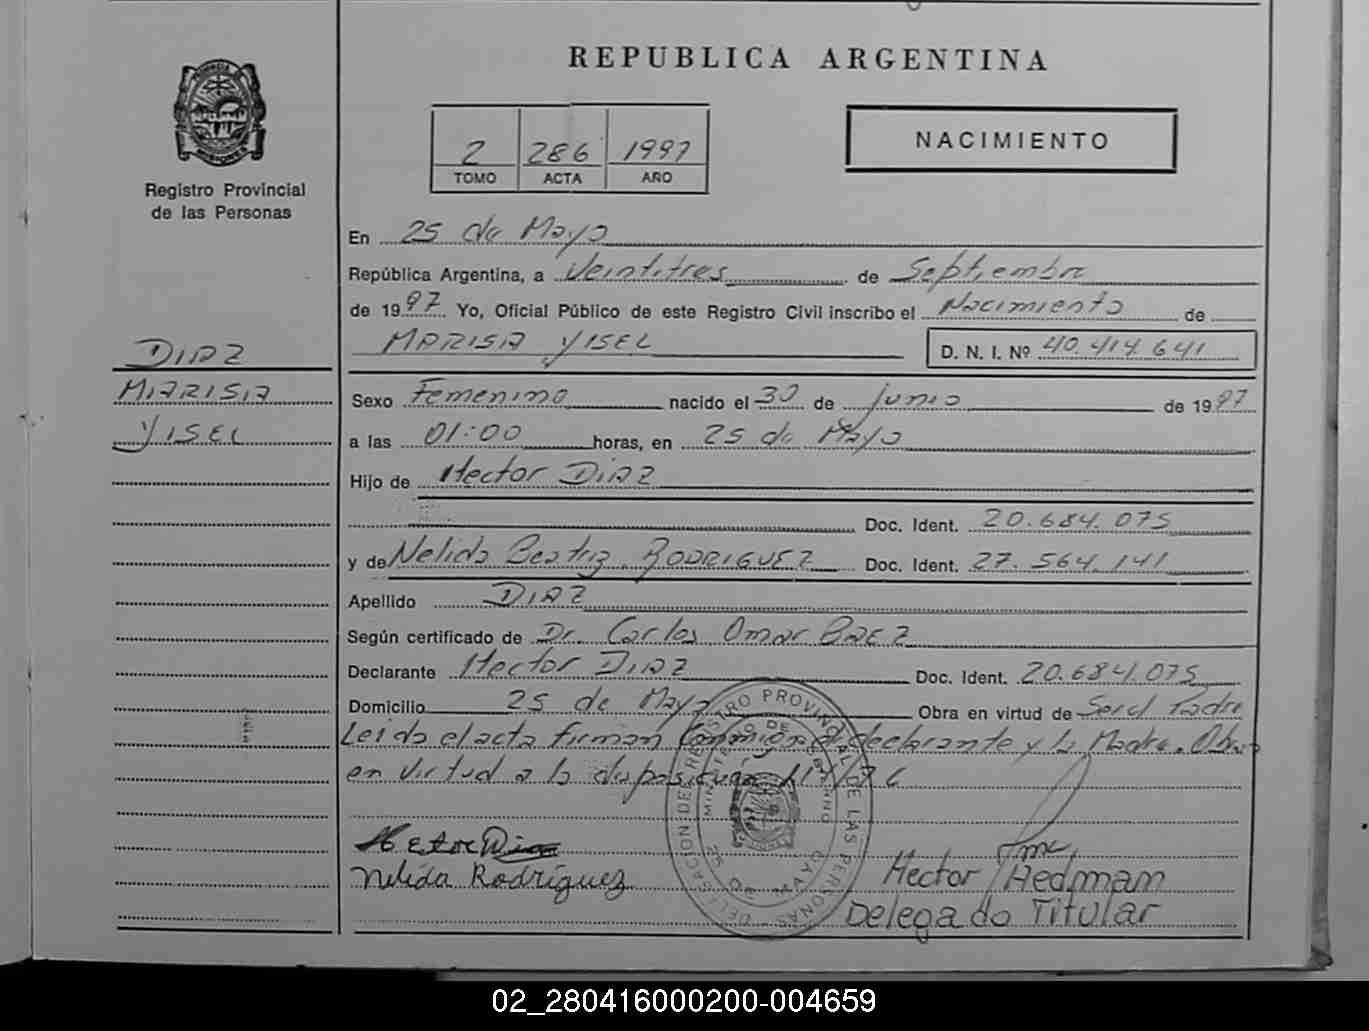 REPUBLICA ARGENTINA
PROVINCIA DE
MISIONES
Registro Provincial
de las Personas
2 286 1997
TOMO ACTA AÑO
NACIMIENTO
En 25 de Mayo
República Argentina, a Veintitres de Septiembre
de 1997 Yo, Oficial Público de este Registro Civil inscribo el Nacimiento de
MARISA YISEL D. N. I. Nº 40.414.641
DIAZ
MARISA
YISEL
Sexo Femenino nacido el 30 de junio de 1997
a las 01:00 horas, en 25 de Mayo
Hijo de Hector DIAZ
Doc. Ident. 20.684.075
y de Nelida Beatriz RODRIGUEZ Doc. Ident. 27.564.141
Apellido DIAZ
Según certificado de Dr. Carlos Omar BAEZ
Declarante Hector DIAZ Doc. Ident. 20.684.075
Domicilio 25 de Mayo Obra en virtud de Ser el Padre
Leida el acta firman Conmigo el declarante y la Madre. Obra
en virtud a la disposición
DELEGACION DEL REGISTRO PROVINCIAL DE LAS PERSONAS
MINISTERIO DE GOBIERNO
25 DE MAYO
Hector Diaz
Nelida Rodriguez
Hector Hedmam
Delegado Titular
02_280416000200-004659